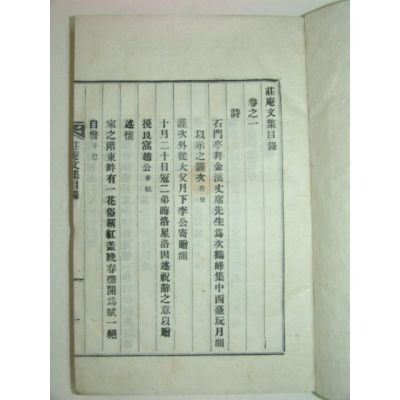 莊庵文集目錄
卷之一
詩
石門亭拜金溪丈席先生爲次鶴峰集中西臺玩月韻
以示之謹次
謹次外從大父月下李公寄贈韻
十月二十日冠二弟晦洛星洛因述祝辭之意以贈
挽艮窩趙公
述懷
家之階東畔有一花俗稱紅盖晩春爛開爲賦一絕
自警 辛巳
莊庵文集目錄
一